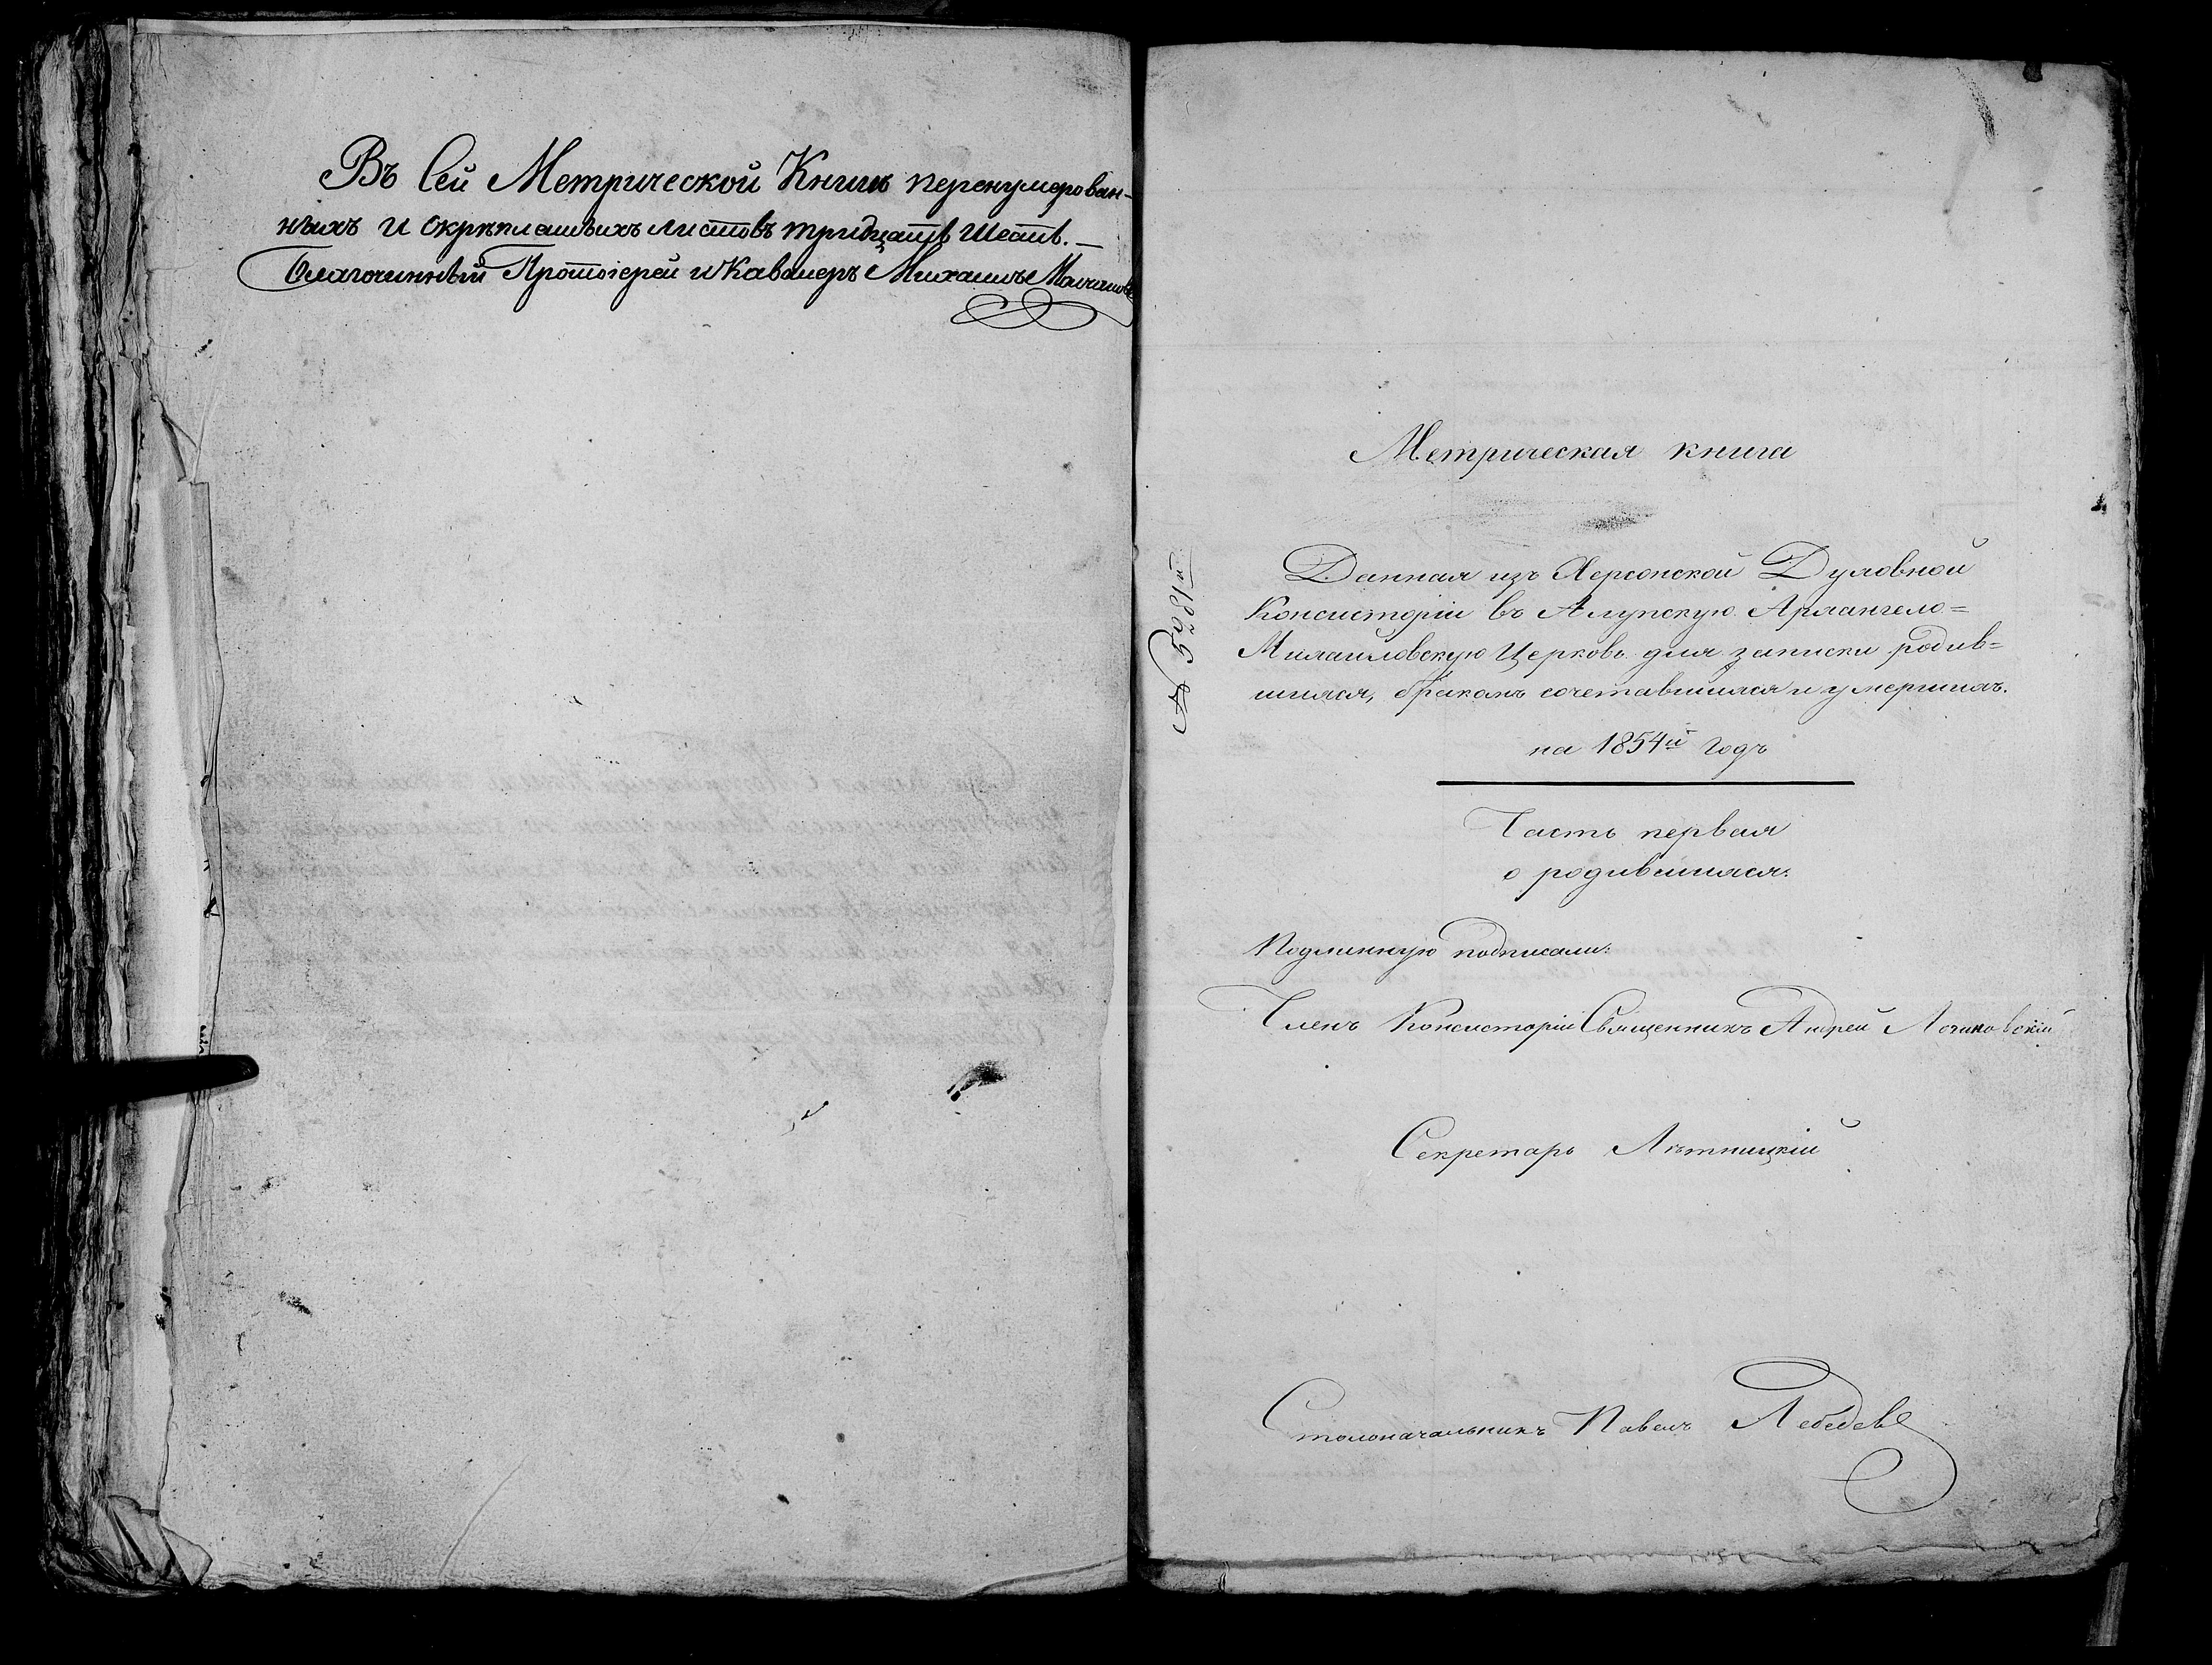 Въ Сей Метрической Книгѣ перенумерован-
ныхъ и скрѣпленныхъ листовъ тридцать шесть. —
Благочинный Протоіерей и Кавалеръ Михаилъ
№ 5281й
Метрическая книга
Данная изъ Херсонской Духовной
Консисторіи въ Алупскую Архангело=
Михаиловскую Церковь для записки родив=
шихся, бракомъ сочетавшихся и умершихъ.
на 1854й Годъ
Часть первая
о родившихся.
Подлинную подписали:
Членъ Консисторіи Священникъ Андрей
Секретарь Лѣтницкій
Столоначальникъ Павелъ Лебедевъ